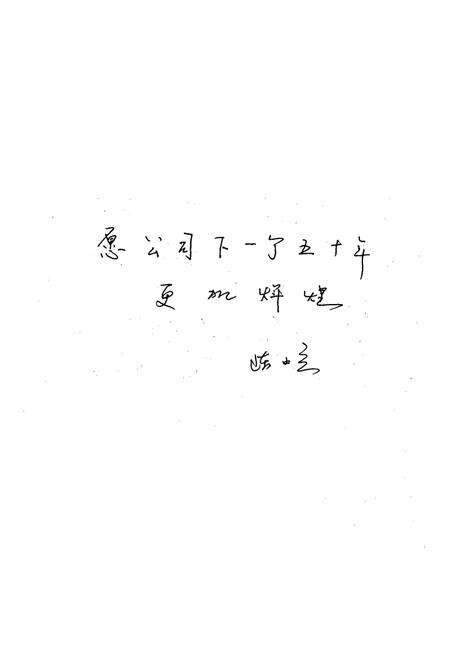 愿公司下一个五十年
更加辉煌